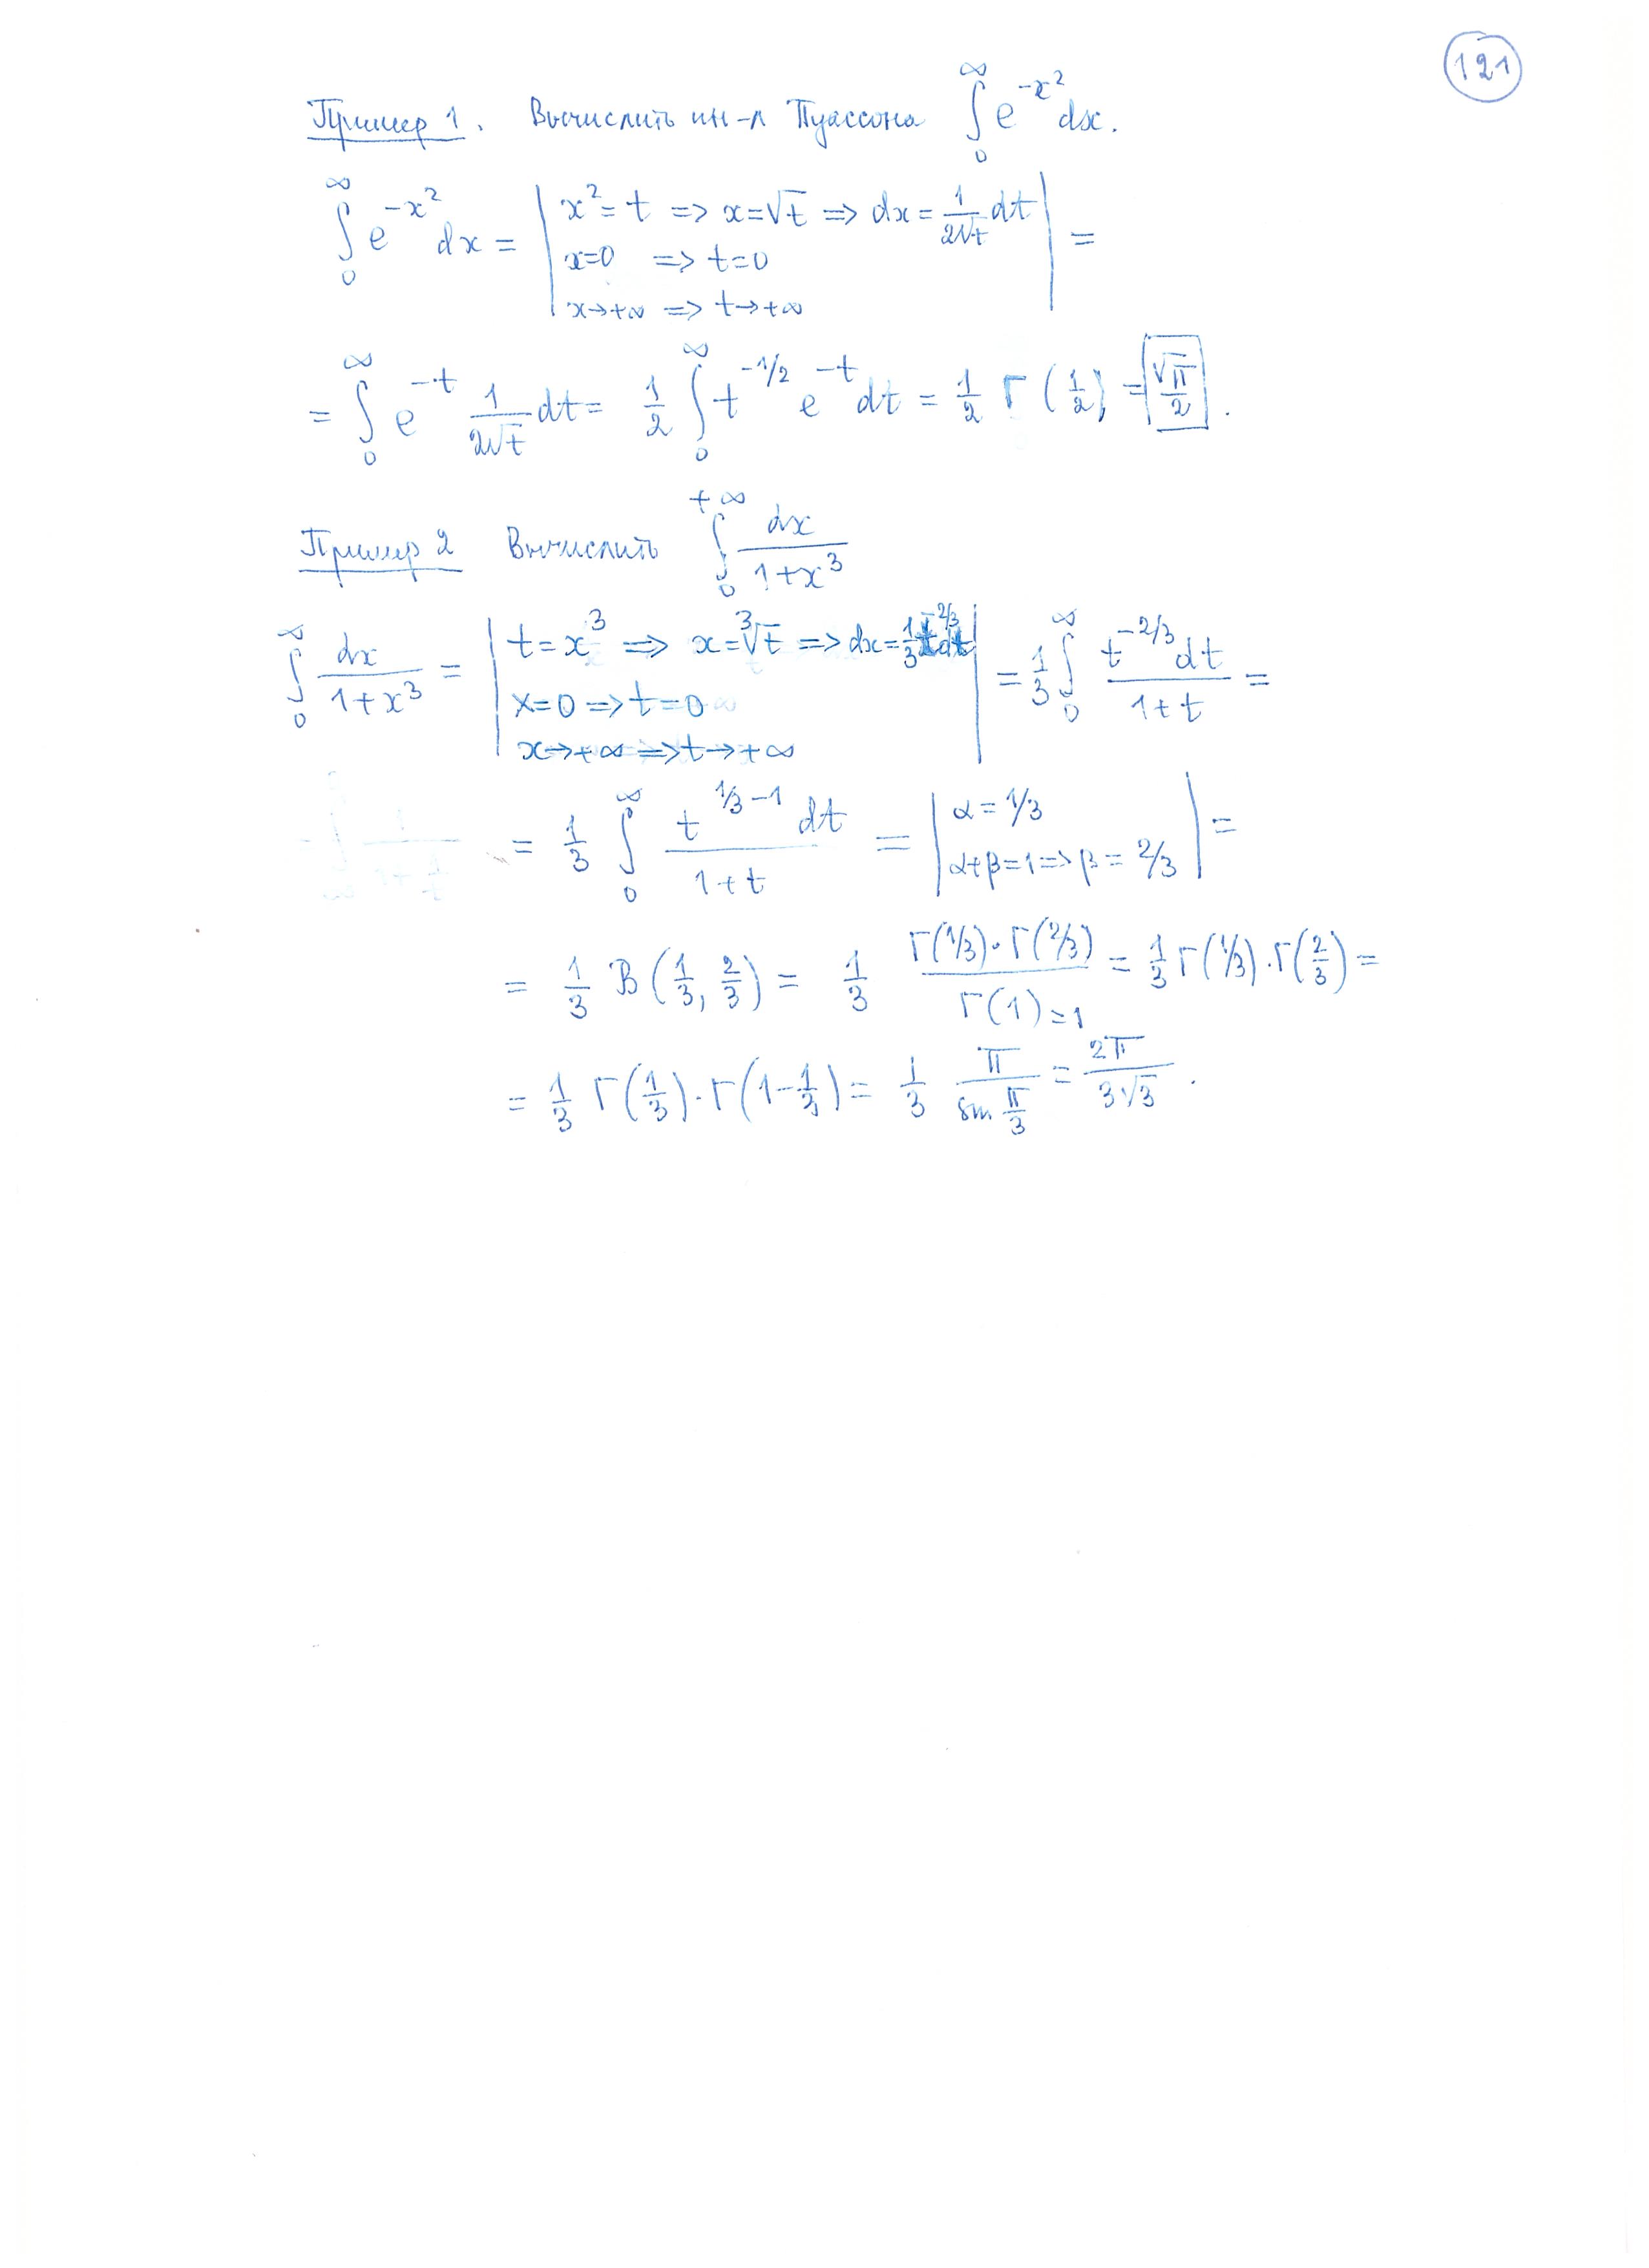 121
Пример 1. Вычислить ин-л Пуассона ∫₀^∞ e^{-x²} dx.
∫₀^∞ e^{-x²} dx = | x² = t => x = √t => dx = 1/(2√t) dt | =
x=0 => t=0
x→+∞ => t→+∞
= ∫₀^∞ e^{-t} 1/(2√t) dt = 1/2 ∫₀^∞ t^{-1/2} e^{-t} dt = 1/2 Γ(1/2) = √π/2.
Пример 2 Вычислить ∫₀^{+∞} dx/(1+x³)
∫₀^∞ dx/(1+x³) = | t = x³ => x = ³√t => dx = 1/3 t^{-2/3} dt | = 1/3 ∫₀^∞ t^{-2/3} dt/(1+t) =
x=0 => t=0
x→+∞ => t→+∞
= 1/3 ∫₀^∞ t^{1/3-1} dt/(1+t) = | α = 1/3 | =
α+β=1 => β = 2/3
= 1/3 B(1/3, 2/3) = 1/3 Γ(1/3)·Γ(2/3)/Γ(1)=1 = 1/3 Γ(1/3)·Γ(2/3) =
= 1/3 Γ(1/3)·Γ(1-1/3) = 1/3 π/(sin π/3) = 2π/(3√3).